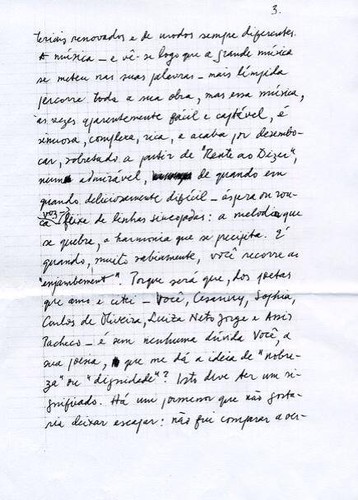 3.
teriais renovados e de modos sempre diferentes.
A música – e vê-se logo que a grande música
se meteu nas suas palavras – mais límpida
percorre toda a sua obra, mas essa música,
às vezes aparentemente fácil e captável, é
sinuosa, complexa, rica, e acaba por desembo-
car, sobretudo a partir de "Rente ao Dizer",
num admirável, de quando em
quando deliciosamente difícil – áspera ou rou-
ca vez – feixe de linhas sincopadas: a melodia que
se quebra, a harmonia que se precipita. É
quando, muito sabiamente, você recorre ao
"enjambement". Porque será que, dos poetas
que amo e citei – Você, Cesariny, Sophia,
Carlos de Oliveira, Luiza Neto Jorge e Assis
Pacheco – é sem nenhuma dúvida Você, a
sua poesia, que me dá a ideia de "nobre-
za" ou "dignidade"? Isto deve ter um si-
gnificado. Há um pormenor que não gosta-
ria deixar escapar: não fui comparar a ver-